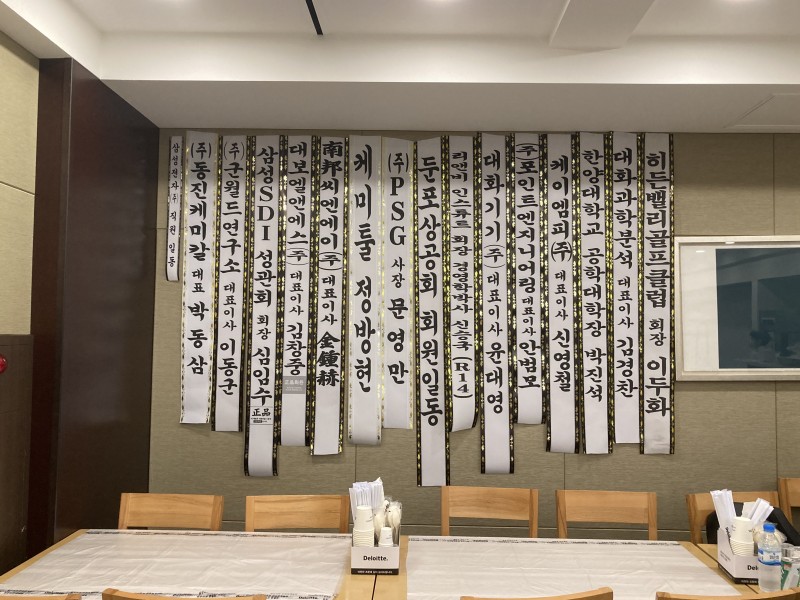 삼성전자㈜ 직원 일동
(주)동진케미칼 대표 박동삼
(주)군월드연구소 대표이사 이동군
삼성SDI 성관회 회장 심임수
正品
대보엘앤에스(주) 대표이사 김창중
正品
南邦씨엔에이(주) 대표이사 金鍾赫
케미툴 정방현
(주)PSG 사장 문영만
둔포상공회 회원일동
리앤비 인스튜트 회장 경영학박사 (R14)
대화기기(주) 대표이사 윤대영
(주)포인트엔지니어링 대표이사 안범모
케이엠피(주) 대표이사 신영철
한양대학교 공학대학장 박진석
대화과학분석 대표이사 김경찬
히든밸리골프클럽 회장 이두화
Deloitte.
Del